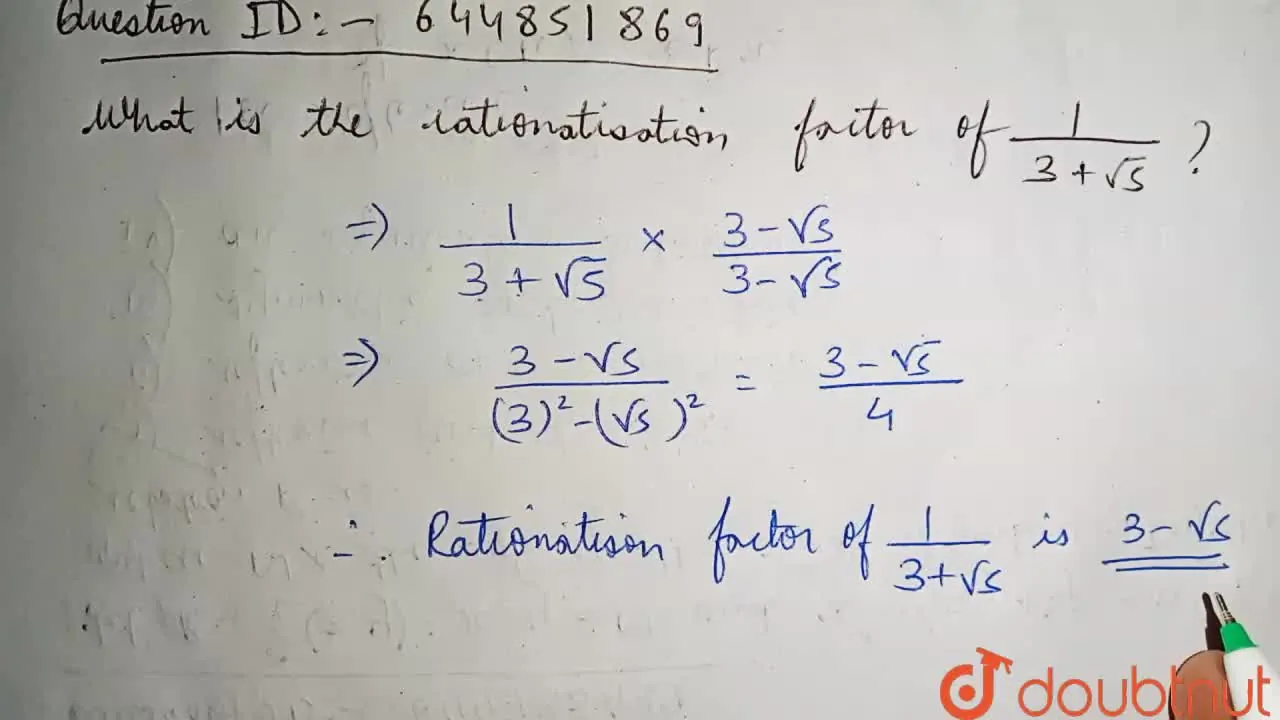 Question ID:- 644851869
What is the rationatisation factor of 1/(3+√5) ?
⇒ 1/(3+√5) × (3-√5)/(3-√5)
⇒ (3-√5)/((3)²-(√5)²) = (3-√5)/4
∴ Rationatison factor of 1/(3+√5) is 3-√5
doubtnut